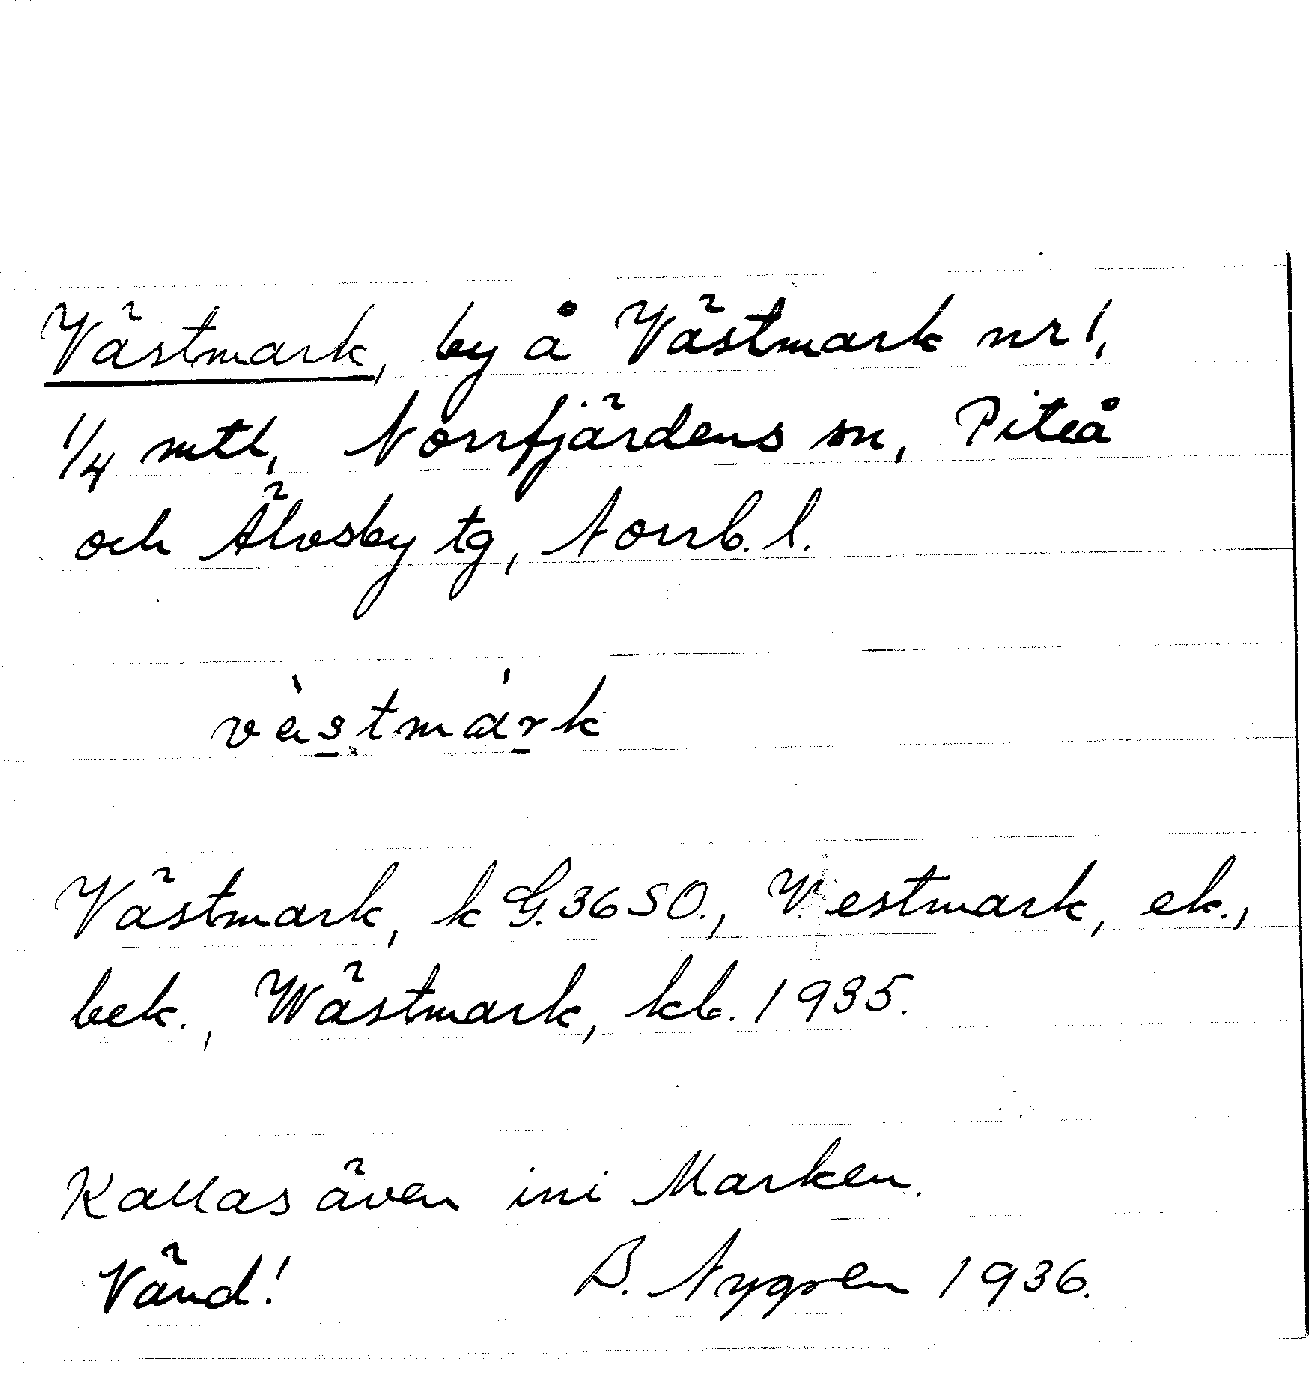 Västmark, by å Västmark nr 1,
1/4 mtl, Norrfjärdens sn, Piteå
och Älvsby tg, Norrb. l.
vàstmárk
Västmark, k G. 36 SO., Westmark, ek.,
bek., Wästmark, kb. 1935.
Kallas även ini Marken.
Vänd! B. Nygren 1936.